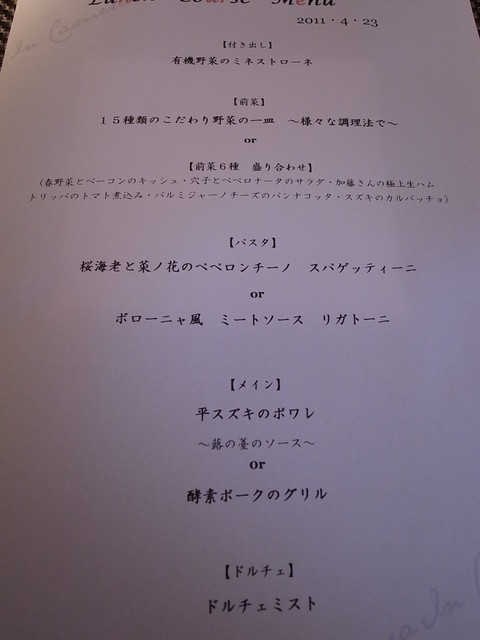 Lunch Course Menu
2011・4・23
【付き出し】
有機野菜のミネストローネ
【前菜】
15種類のこだわり野菜の一皿 ～様々な調理法で～
or
【前菜6種 盛り合わせ】
(春野菜とベーコンのキッシュ・穴子とペペロナータのサラダ・加藤さんの極上生ハム
トリッパのトマト煮込み・パルミジャーノチーズのパンナコッタ・スズキのカルパッチョ)
【パスタ】
桜海老と菜ノ花のペペロンチーノ スパゲッティーニ
or
ボローニャ風 ミートソース リガトーニ
【メイン】
平スズキのポワレ
～蕗の薹のソース～
or
酵素ポークのグリル
【ドルチェ】
ドルチェミスト